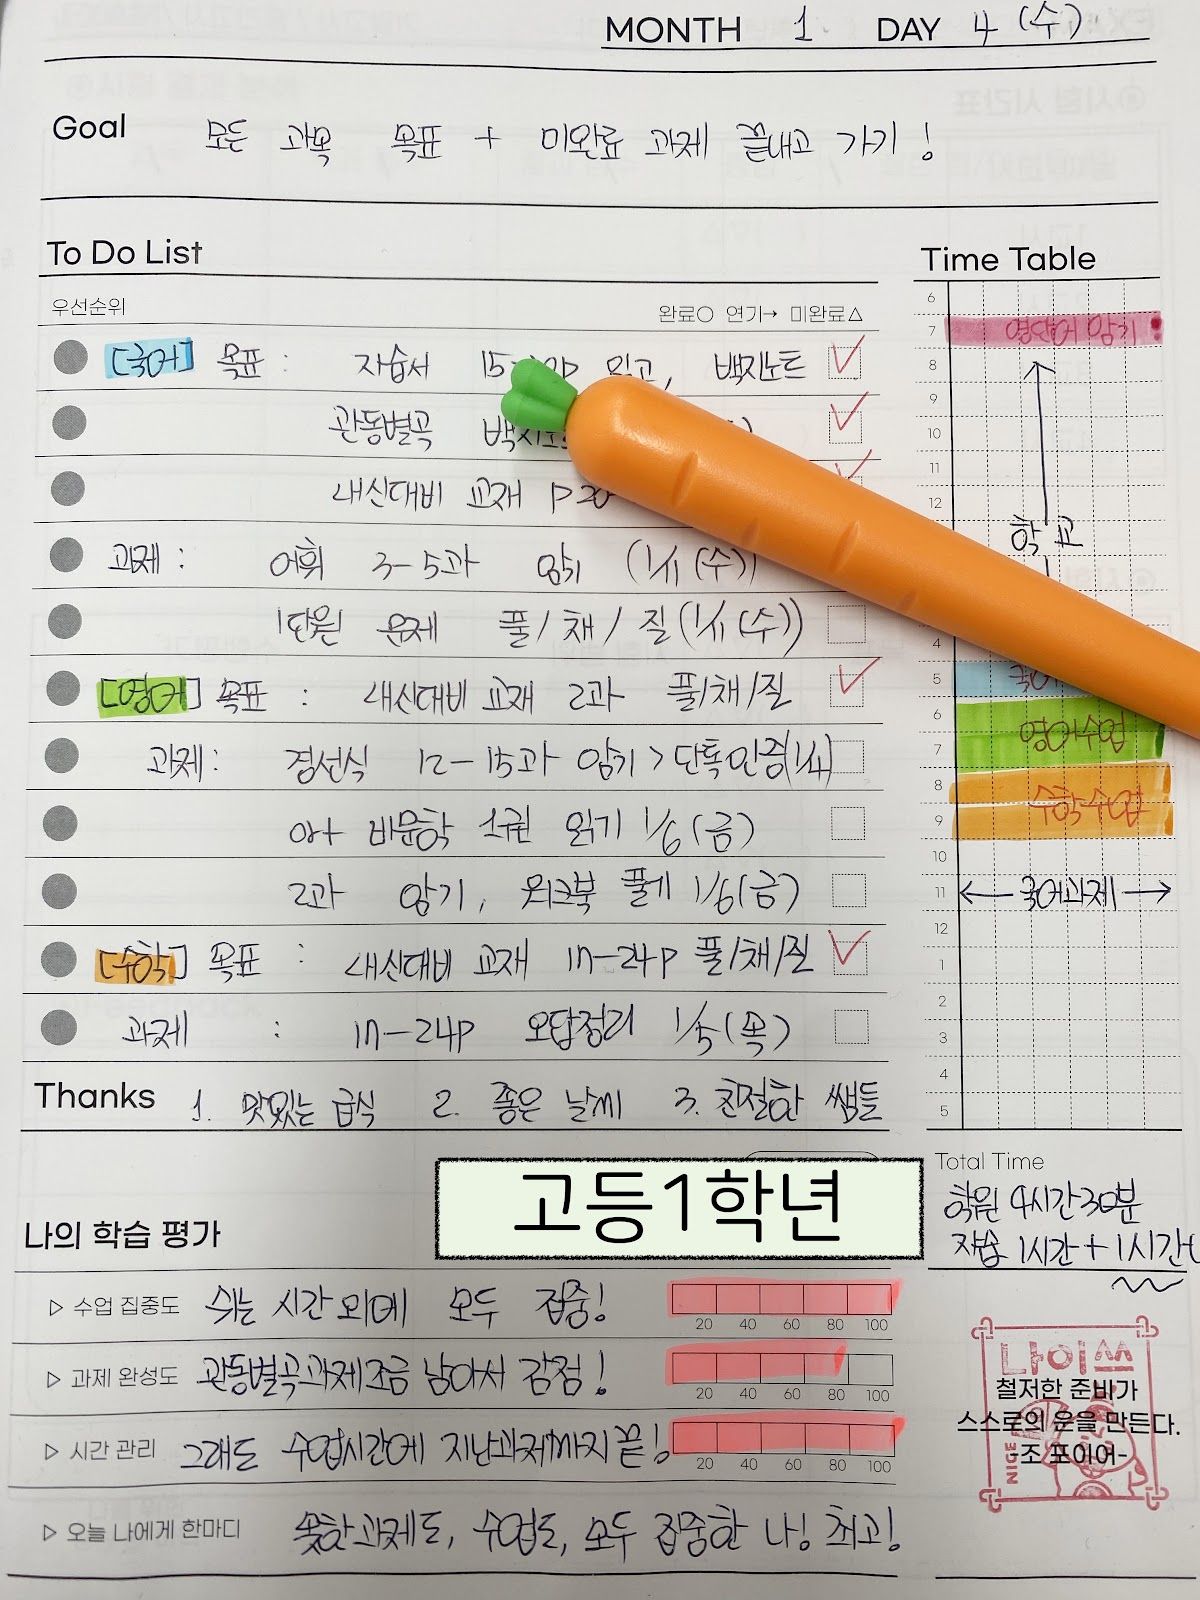 MONTH 1 DAY 4 (수)
Goal 모든 과목 목표 + 미완료 과제 끝내고 가기!
To Do List
우선순위 완료○ 연기→ 미완료△
[국어] 목표 : 자습서 15- 읽고, 백지노트
관동별곡
내신대비 교재 P20-
과제 : 어휘 3-5과 암기 (1/11 (수))
1단원 문제 풀/채/질 (1/11 (수))
[영어] 목표 : 내신대비 교재 2과 풀/채/질
과제: 경선식 12-15과 암기 > 단톡인증(1/4)
비문학 1권 읽기 1/6 (금)
2과 암기, 워크북 풀기 1/6(금)
[수학] 목표 : 내신대비 교재 17-24P 풀/채/질
과제 : 17-24P 오답정리 1/5 (목)
Thanks 1. 맛있는 급식 2. 좋은 날씨 3. 친절한 쌤들
Time Table
6
7 영단어 암기!
8
9
10
11
12
학교
4
5 국어
6 영어수업
7
8 수학수업
9
10
11 ← 국어과제 →
12
1
2
3
4
5
고등1학년
Total Time
학원 4시간30분
자습 1시간 + 1시간
나의 학습 평가
▷ 수업 집중도 쉬는 시간 외에 모두 집중!
20 40 60 80 100
▷ 과제 완성도 관동별곡과제조금 남아서 감점!
20 40 60 80 100
▷ 시간 관리 그래도 수업시간에 지난과제까지 끝!
20 40 60 80 100
▷ 오늘 나에게 한마디 못한과제도, 수업도, 모두 집중한 나! 최고!
나이쓰
철저한 준비가
스스로의 운을 만든다.
-조 포이어-
NICE